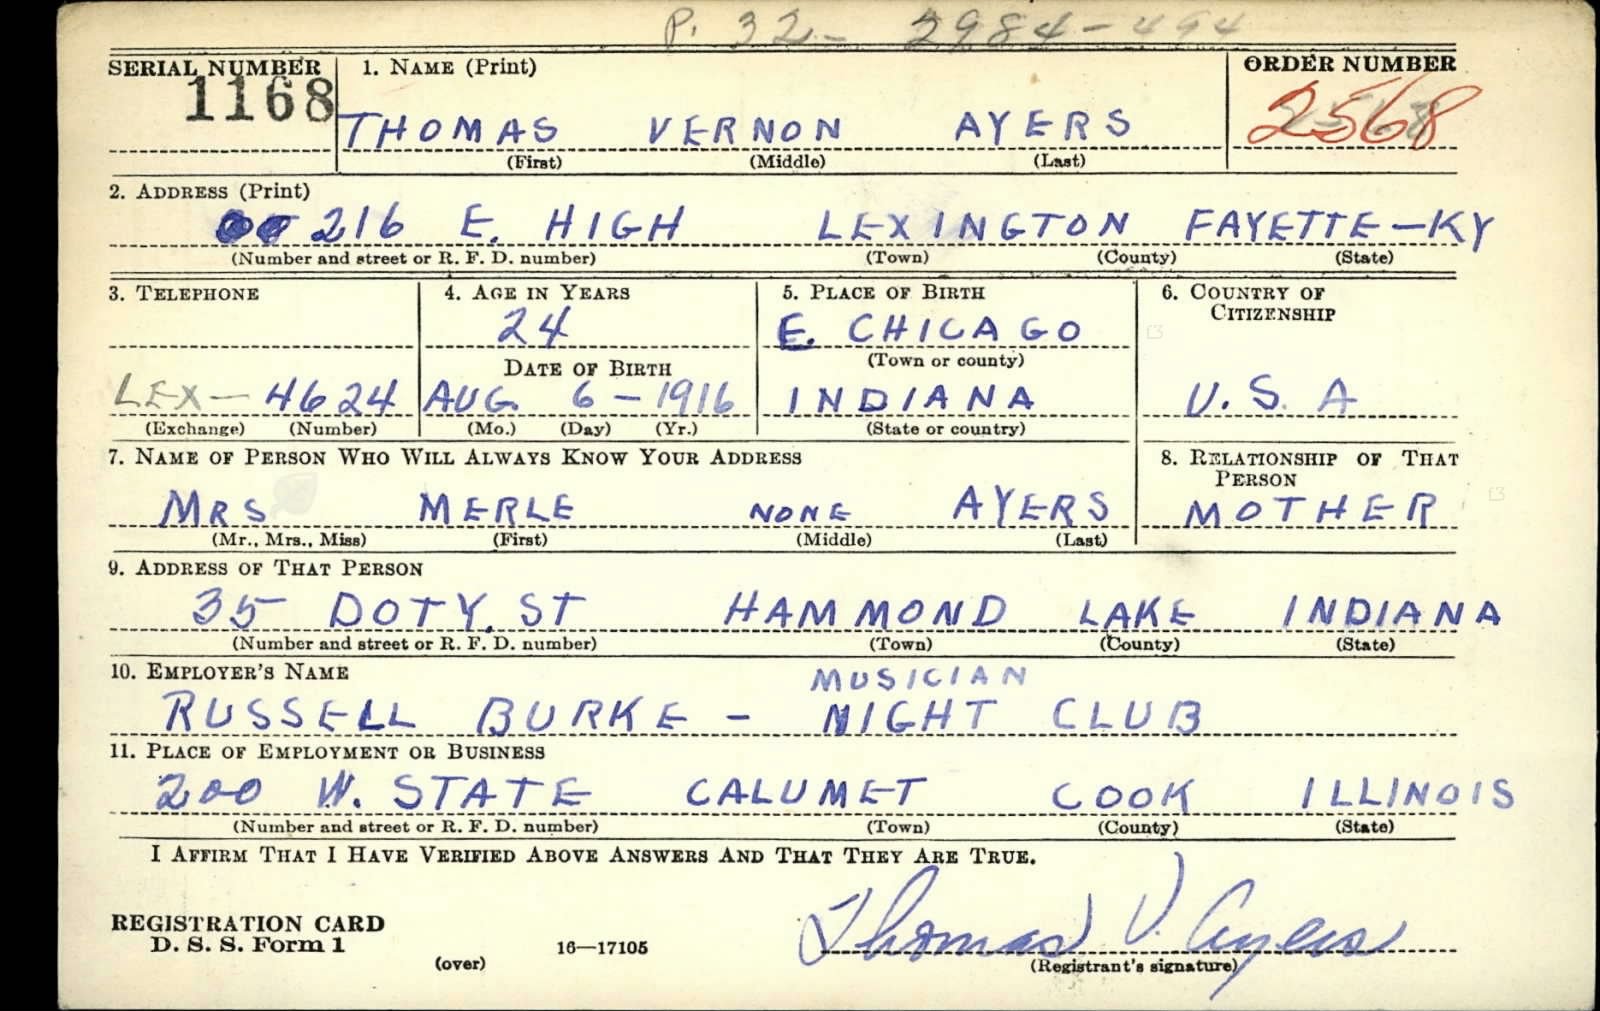 P. 32- 2984-494
SERIAL NUMBER 1. NAME (Print) ORDER NUMBER
1168 2568
THOMAS VERNON AYERS
(First) (Middle) (Last)
2. ADDRESS (Print)
216 E. HIGH LEXINGTON FAYETTE-KY
(Number and street or R. F. D. number) (Town) (County) (State)
3. TELEPHONE 4. AGE IN YEARS 5. PLACE OF BIRTH 6. COUNTRY OF
CITIZENSHIP
24 E. CHICAGO
DATE OF BIRTH (Town or county)
LEX- 4624 AUG. 6-1916 INDIANA U.S.A
(Exchange) (Number) (Mo.) (Day) (Yr.) (State or country)
7. NAME OF PERSON WHO WILL ALWAYS KNOW YOUR ADDRESS 8. RELATIONSHIP OF THAT
PERSON
MRS MERLE NONE AYERS MOTHER
(Mr., Mrs., Miss) (First) (Middle) (Last)
9. ADDRESS OF THAT PERSON
35 DOTY. ST HAMMOND LAKE INDIANA
(Number and street or R. F. D. number) (Town) (County) (State)
10. EMPLOYER'S NAME MUSICIAN
RUSSELL BURKE - NIGHT CLUB
11. PLACE OF EMPLOYMENT OR BUSINESS
200 W. STATE CALUMET COOK ILLINOIS
(Number and street or R. F. D. number) (Town) (County) (State)
I AFFIRM THAT I HAVE VERIFIED ABOVE ANSWERS AND THAT THEY ARE TRUE.
REGISTRATION CARD Thomas V. Ayers
D. S. S. Form 1 16—17105
(over) (Registrant's signature)